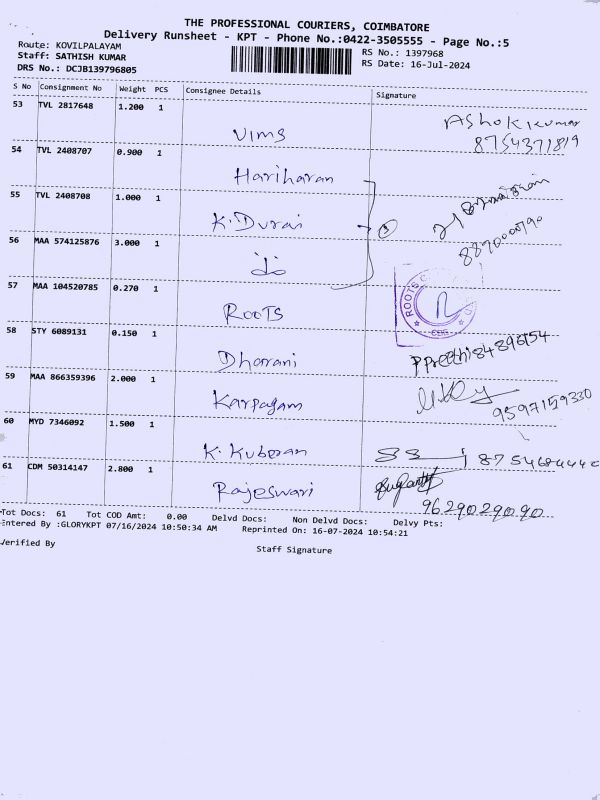 THE PROFESSIONAL COURIERS, COIMBATORE
Delivery Runsheet - KPT - Phone No.:0422-3505555 - Page No.:5
Route: KOVILPALAYAM
Staff: SATHISH KUMAR
DRS No.: DCJB139796805
RS No.: 1397968
RS Date: 16-Jul-2024
S No Consignment No Weight PCS Consignee Details Signature
53 TVL 2817648 1.200 1
Vims
Ashok kumar
8754371819
54 TVL 2408707 0.900 1
Hariharan
55 TVL 2408708 1.000 1
K. Durai
3
8870000790
56 MAA 574125876 3.000 1
do
57 MAA 104520785 0.270 1
Roots
ROOTS
58 STY 6089131 0.150 1
Dharani
P Preethi 84896154
59 MAA 866359396 2.000 1
Karpagam
9597159330
60 MYD 7346092 1.500 1
K. Kuberan
61 CDM 50314147 2.800 1
Rajeswari
9629029090
Tot Docs: 61 Tot COD Amt: 0.00 Delvd Docs: Non Delvd Docs: Delvy Pts:
Entered By :GLORYKPT 07/16/2024 10:50:34 AM Reprinted On: 16-07-2024 10:54:21
Verified By
Staff Signature